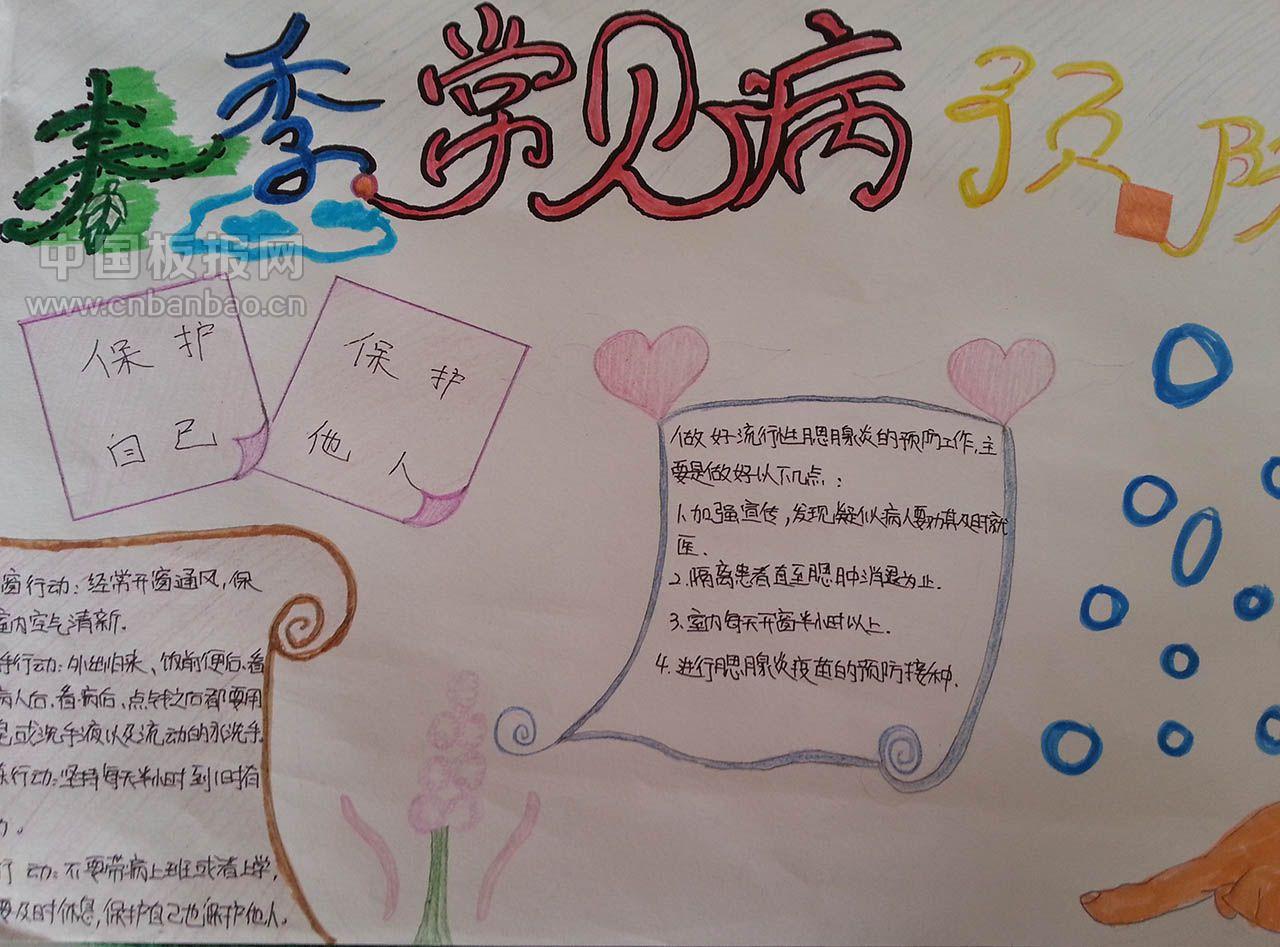 春季常见病预防
中国板报网
www.cnbanbao.cn
保护
自己
保护
他人
做好流行性腮腺炎的预防工作,主
要是做好以下几点:
1.加强宣传,发现疑似病人要劝其及时就
医.
2.隔离患者直至腮肿消退为止.
3.室内每天开窗半小时以上.
4.进行腮腺炎疫苗的预防接种.
窗行动:经常开窗通风,保
室内空气清新.
行动:外出归来、饭前便后、看
病人后、看病后、点钱之后都要用
皂或洗手液以及流动的水洗手
行动:坚持每天半小时到1小时有
行动:不要带病上班或者上学,
要及时休息,保护自己也保护他人。